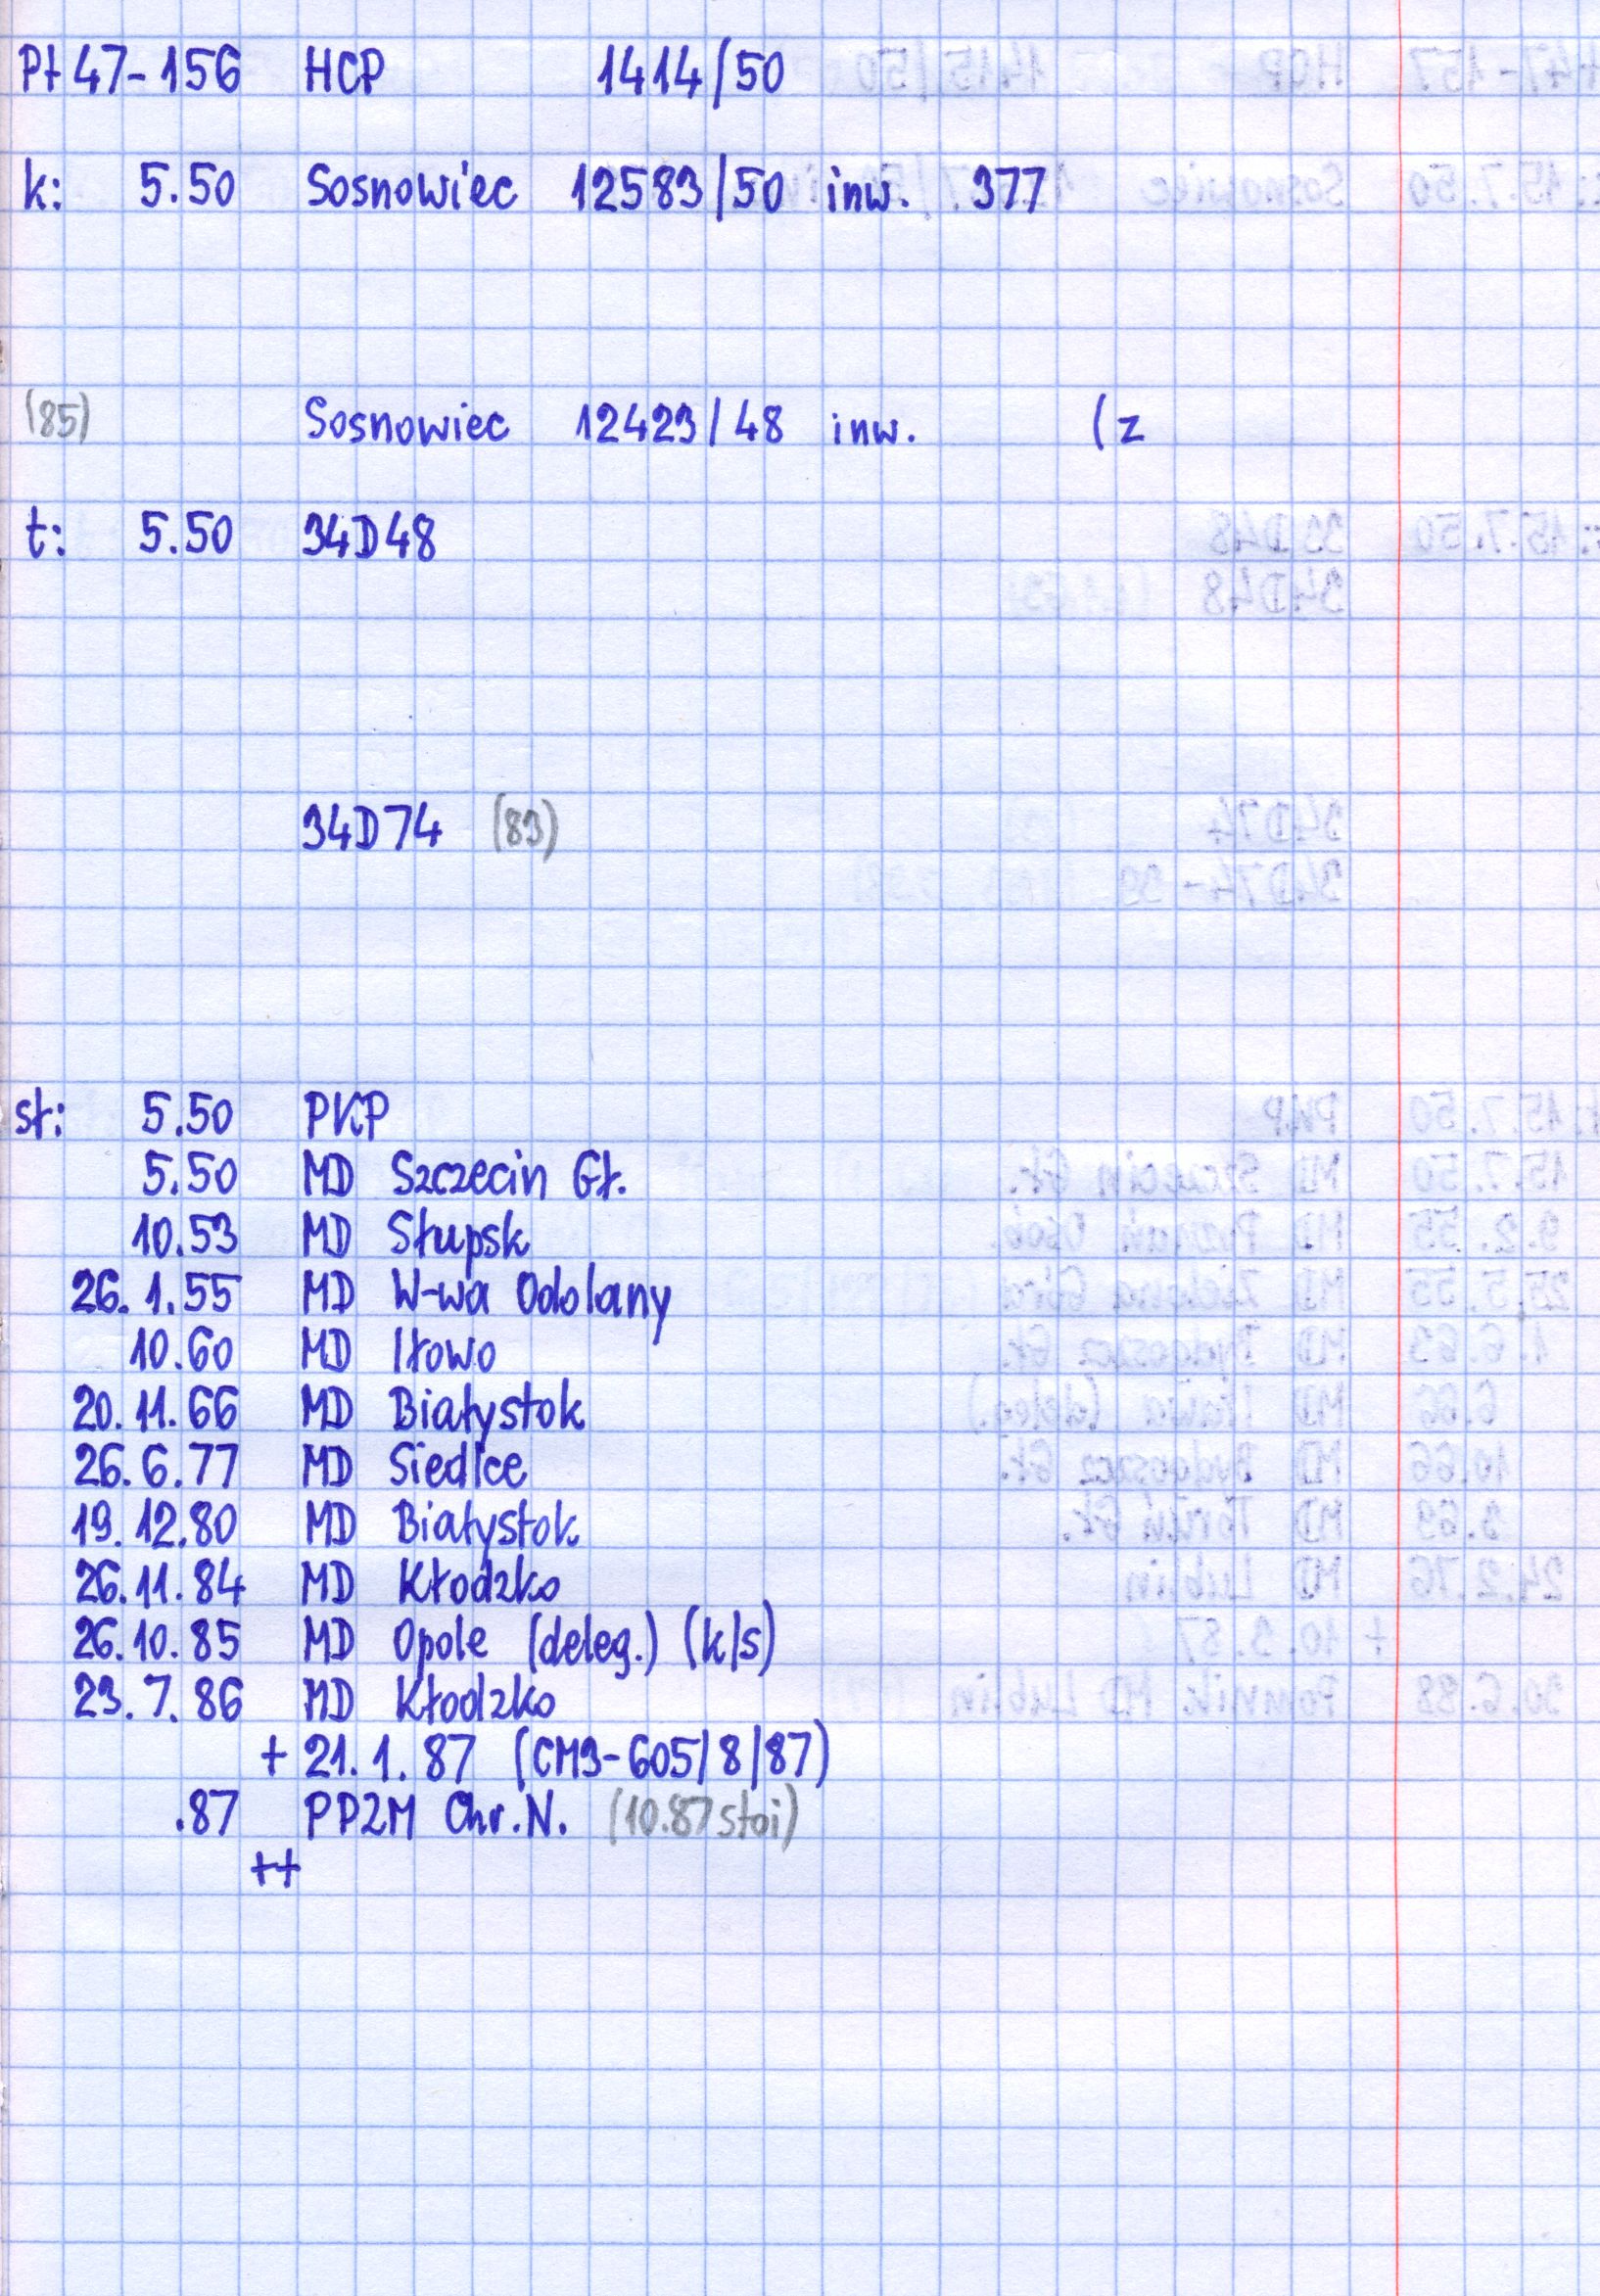 Pt 47-156 HCP 1414/50
k: 5.50 Sosnowiec 12583/50 inw. 377
(85) Sosnowiec 12423/48 inw. (z
t: 5.50 34D48
34D74 (83)
st: 5.50 PKP
5.50 MD Szczecin Gł.
10.53 MD Słupsk
26.1.55 MD W-wa Odolany
10.60 MD Iłowo
20.11.66 MD Białystok
26.6.77 MD Siedlce
19.12.80 MD Białystok
26.11.84 MD Kłodzko
26.10.85 MD Opole (deleg.) (k/s)
23.7.86 MD Kłodzko
+ 21.1.87 (CM3-605/8/87)
.87 PPZM Chr.N. (10.87 stoi)
++